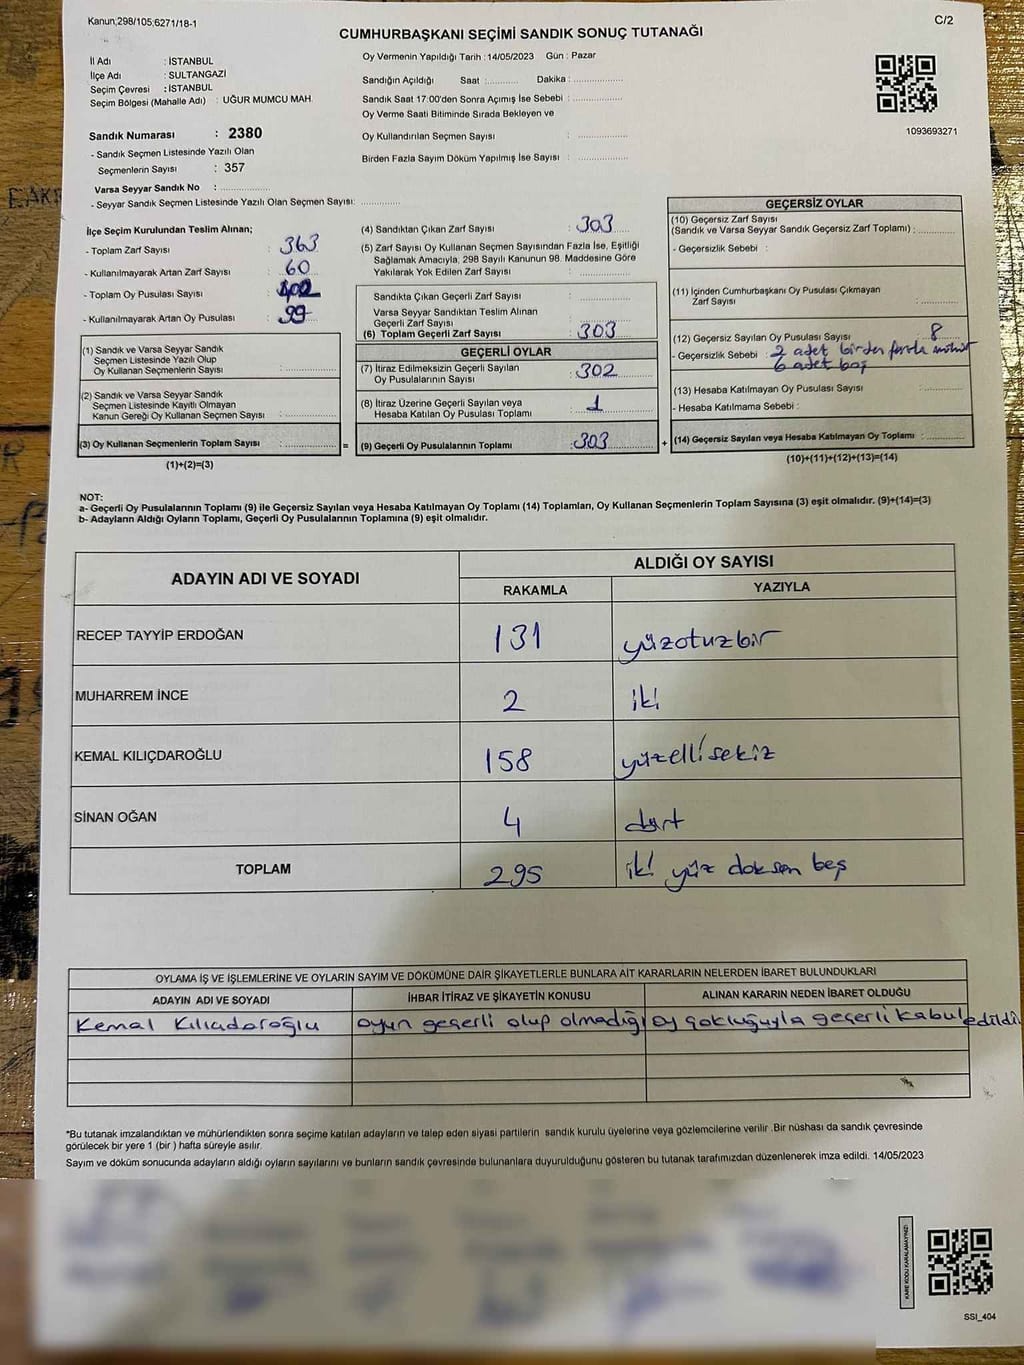 Kanun;298/105;6271/18-1
C/2
CUMHURBAŞKANI SEÇİMİ SANDIK SONUÇ TUTANAĞI
İl Adı : İSTANBUL
İlçe Adı : SULTANGAZİ
Seçim Çevresi : İSTANBUL
Seçim Bölgesi (Mahalle Adı) : UĞUR MUMCU MAH.
Sandık Numarası : 2380
- Sandık Seçmen Listesinde Yazılı Olan
Seçmenlerin Sayısı : 357
Varsa Seyyar Sandık No :
- Seyyar Sandık Seçmen Listesinde Yazılı Olan Seçmen Sayısı:
Oy Vermenin Yapıldığı Tarih : 14/05/2023 Gün : Pazar
Sandığın Açıldığı Saat : Dakika :
Sandık Saat 17:00'den Sonra Açımış İse Sebebi :
Oy Verme Saati Bitiminde Sırada Bekleyen ve
Oy Kullandırılan Seçmen Sayısı :
Birden Fazla Sayım Döküm Yapılmış İse Sayısı :
1093693271
İlçe Seçim Kurulundan Teslim Alınan;
- Toplam Zarf Sayısı : 363
- Kullanılmayarak Artan Zarf Sayısı : 60
- Toplam Oy Pusulası Sayısı : 402
- Kullanılmayarak Artan Oy Pusulası : 99
(1) Sandık ve Varsa Seyyar Sandık
Seçmen Listesinde Yazılı Olup
Oy Kullanan Seçmenlerin Sayısı :
(2) Sandık ve Varsa Seyyar Sandık
Seçmen Listesinde Kayıtlı Olmayan
Kanun Gereği Oy Kullanan Seçmen Sayısı :
(3) Oy Kullanan Seçmenlerin Toplam Sayısı :
(1)+(2)=(3)
=
(4) Sandıktan Çıkan Zarf Sayısı : 303
(5) Zarf Sayısı Oy Kullanan Seçmen Sayısından Fazla İse, Eşitliği
Sağlamak Amacıyla, 298 Sayılı Kanunun 98. Maddesine Göre
Yakılarak Yok Edilen Zarf Sayısı :
Sandıkta Çıkan Geçerli Zarf Sayısı :
Varsa Seyyar Sandıktan Teslim Alınan
Geçerli Zarf Sayısı :
(6) Toplam Geçerli Zarf Sayısı : 303
GEÇERLİ OYLAR
(7) İtiraz Edilmeksizin Geçerli Sayılan
Oy Pusulalarının Sayısı : 302
(8) İtiraz Üzerine Geçerli Sayılan veya
Hesaba Katılan Oy Pusulası Toplamı : 1
(9) Geçerli Oy Pusulalarının Toplamı : 303
+
GEÇERSİZ OYLAR
(10) Geçersiz Zarf Sayısı
(Sandık ve Varsa Seyyar Sandık Geçersiz Zarf Toplamı) :
- Geçersizlik Sebebi :
(11) İçinden Cumhurbaşkanı Oy Pusulası Çıkmayan
Zarf Sayısı :
(12) Geçersiz Sayılan Oy Pusulası Sayısı : 8
- Geçersizlik Sebebi : 2 adet birden fazla mühür
6 adet boş
(13) Hesaba Katılmayan Oy Pusulası Sayısı :
- Hesaba Katılmama Sebebi :
(14) Geçersiz Sayılan veya Hesaba Katılmayan Oy Toplamı :
(10)+(11)+(12)+(13)=(14)
NOT:
a- Geçerli Oy Pusulalarının Toplamı (9) ile Geçersiz Sayılan veya Hesaba Katılmayan Oy Toplamı (14) Toplamları, Oy Kullanan Seçmenlerin Toplam Sayısına (3) eşit olmalıdır. (9)+(14)=(3)
b- Adayların Aldığı Oyların Toplamı, Geçerli Oy Pusulalarının Toplamına (9) eşit olmalıdır.
ADAYIN ADI VE SOYADI
ALDIĞI OY SAYISI
RAKAMLA YAZIYLA
RECEP TAYYİP ERDOĞAN 131 yüzotuzbir
MUHARREM İNCE 2 iki
KEMAL KILIÇDAROĞLU 158 yüzellisekiz
SİNAN OĞAN 4 dört
TOPLAM 295 iki yüz doksan beş
OYLAMA İŞ VE İŞLEMLERİNE VE OYLARIN SAYIM VE DÖKÜMÜNE DAİR ŞİKAYETLERLE BUNLARA AİT KARARLARIN NELERDEN İBARET BULUNDUKLARI
ADAYIN ADI VE SOYADI İHBAR İTİRAZ VE ŞİKAYETİN KONUSU ALINAN KARARIN NEDEN İBARET OLDUĞU
Kemal Kılıçdaroğlu oyun geçerli olup olmadığı oy çokluğuyla geçerli kabul edildi.
*Bu tutanak imzalandıktan ve mühürlendikten sonra seçime katılan adayların ve talep eden siyasi partilerin sandık kurulu üyelerine veya gözlemcilerine verilir .Bir nüshası da sandık çevresinde
görülecek bir yere 1 (bir ) hafta süreyle asılır.
Sayım ve döküm sonucunda adayların aldığı oyların sayılarını ve bunların sandık çevresinde bulunanlara duyurulduğunu gösteren bu tutanak tarafımızdan düzenlenerek imza edildi. 14/05/2023
KARE KODU KARALAMAYINIZ!
SSI_404